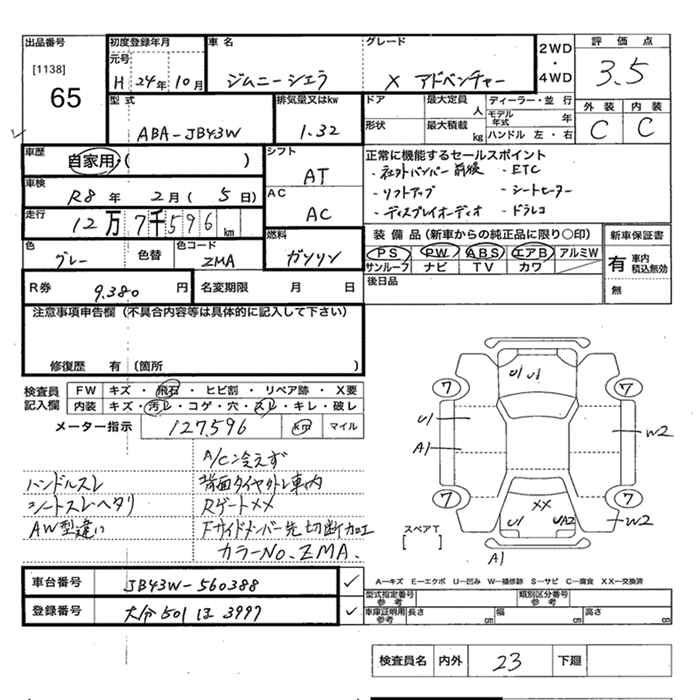 出品番号 初度登録年月 車名 グレード 2WD・4WD 評価点
[1138] 元号
65 H 24年 10月 ジムニーシエラ X アドベンチャー 3.5
型式 排気量又はkw ドア 最大定員 人 ディーラー・並行 外装 内装
ABA-JB43W 1.32 形状 最大積載 kg モデル年式 年 C C
ハンドル 左・右
車歴 自家用・( ) シフト AT 正常に機能するセールスポイント
・社外バンパー前後 ・ETC
車検 R8年 2月(5日) AC AC ・リフトアップ ・シートヒーター
・ディスプレイオーディオ ・ドラレコ
走行 12万7千596km 燃料 ガソリン 装備品(新車からの純正品に限り○印) 新車保証書
色 グレー 色替 色コード ZMA PS PW ABS エアB アルミW 有 車内 積込無効
サンルーフ ナビ TV カワ 無
R券 9,380円 名変期限 月 日 後日品
注意事項申告欄(不具合内容等は具体的に記入して下さい)
修復歴 有(箇所 )
検査員記入欄 FW キズ・飛石・ヒビ割・リペア跡・X要
内装 キズ・汚レ・コゲ・穴・スレ・キレ・破レ
メーター指示 127,596 km マイル
A/C冷えず
ハンドルスレ 背面タイヤ外し車内
シートスレヘタリ Rゲートメメ
AW型違い Fサイドメンバー先切断加工
カラーNo.ZMA.
7 U1 U1 7
U1 W2
A1
7 XX 7
U1 UA2 W2
スペアT [ ]
A1
A―キズ E―エクボ U―凹み W―補修跡 S―サビ C―腐食 XX―交換済
車台番号 JB43W-560388 ✓ 型式指定番号 参考 類別区分番号 参考
登録番号 大分501ほ3997 ✓ 車庫証明用 参考 長さ cm 幅 cm 高さ cm
検査員名 内外 23 下廻